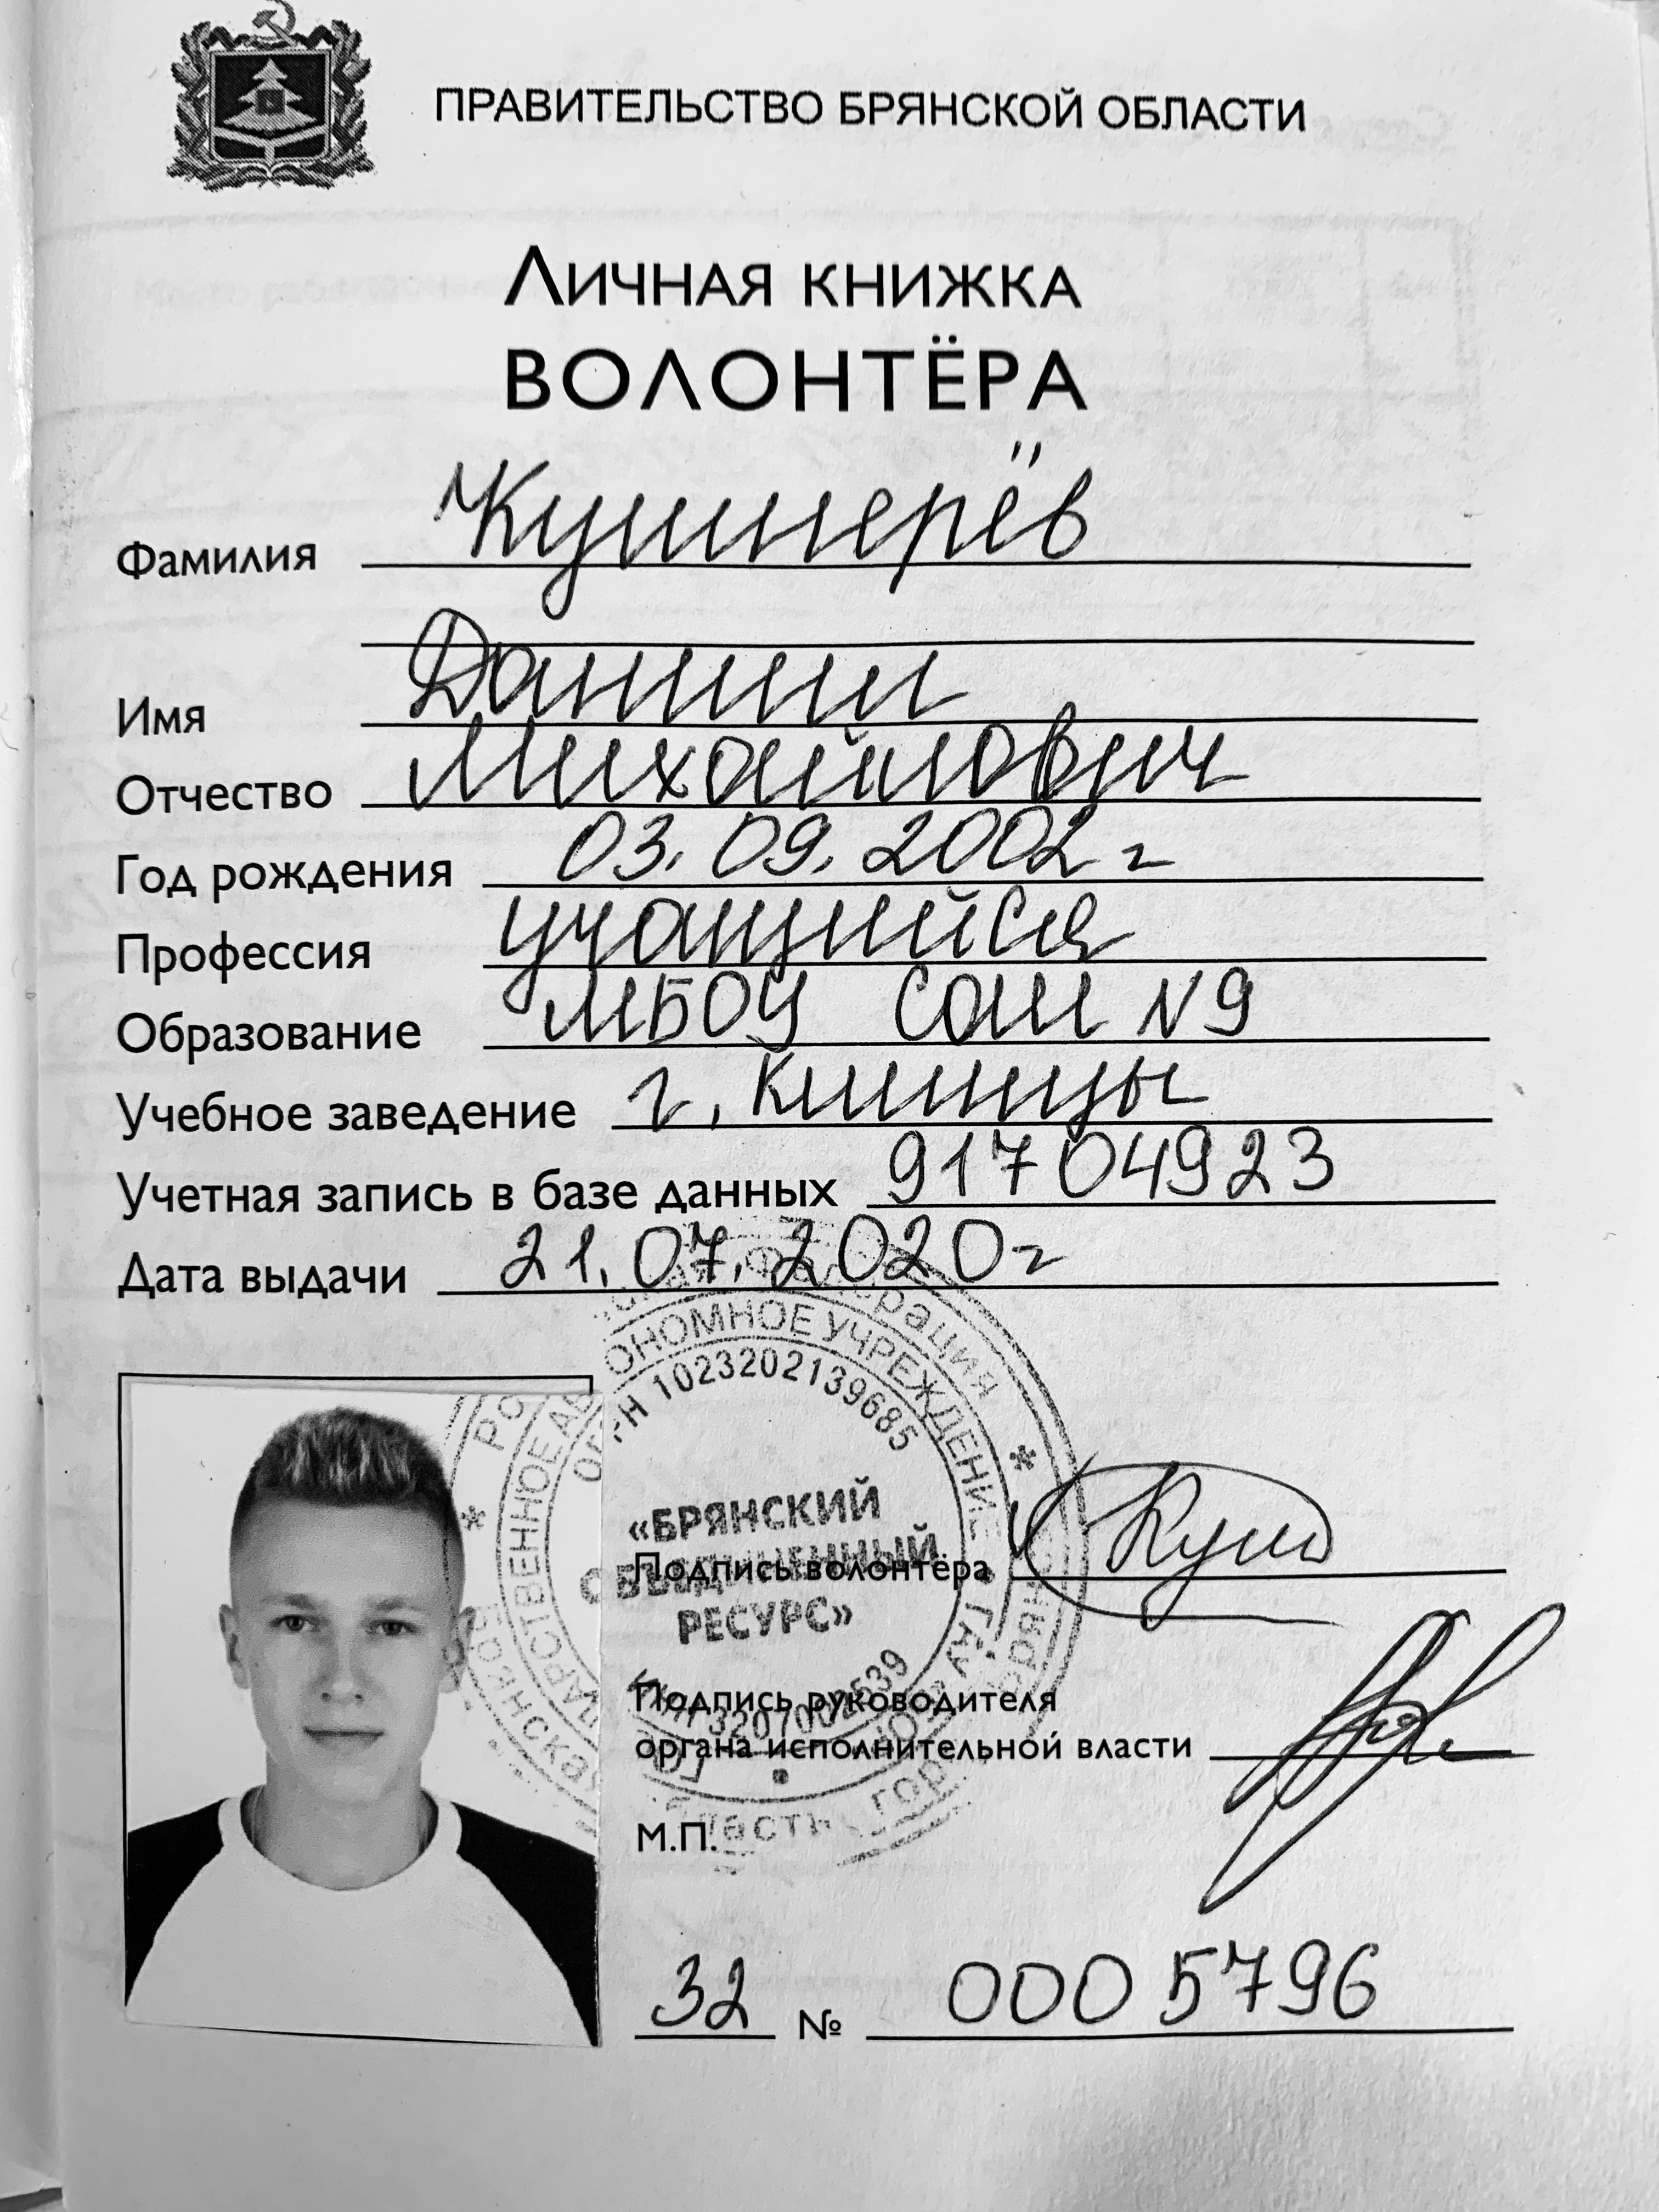 ПРАВИТЕЛЬСТВО БРЯНСКОЙ ОБЛАСТИ
ЛИЧНАЯ КНИЖКА
ВОЛОНТЁРА
Фамилия Кушнерёв
Имя Даниил
Отчество Михайлович
Год рождения 03.09.2002 г
Профессия учащийся
Образование МБОУ СОШ N9
Учебное заведение г. Клинцы
Учетная запись в базе данных 91704923
Дата выдачи 21.07.2020 г
Федерация
АВТОНОМНОЕ УЧРЕЖДЕНИЕ
ОГРН 1023202139685
«БРЯНСКИЙ
ОБЪЕДИНЕННЫЙ
РЕСУРС»
Подпись волонтёра Куш
Подпись руководителя
органа исполнительной власти
М.П.
32 № 0005796